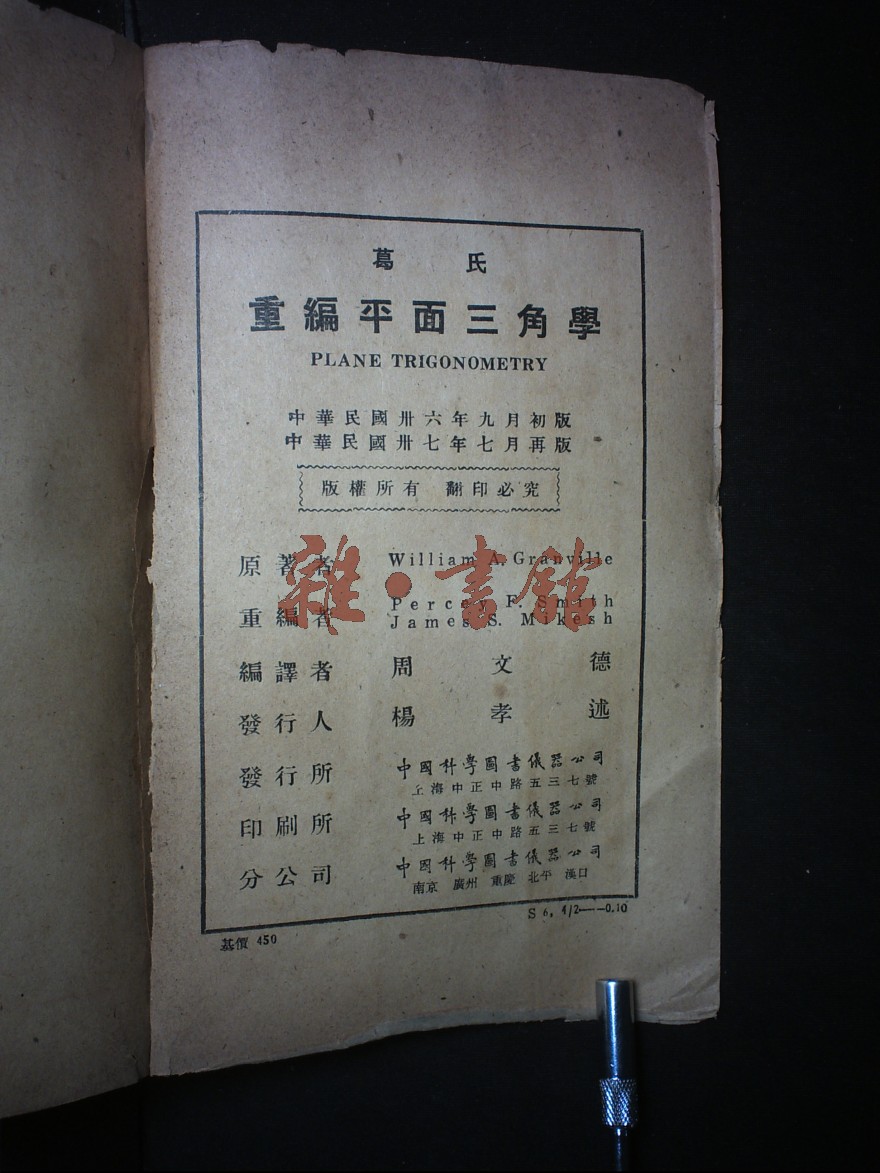 葛氏
重編平面三角學
PLANE TRIGONOMETRY
中華民國卅六年九月初版
中華民國卅七年七月再版
版權所有 翻印必究
原著者 William A. Granville
重編者 Percey F. Smith
James S. Mikesh
雜·書館
編譯者 周文德
發行人 楊孝述
發行所 中國科學圖書儀器公司
上海中正中路五三七號
印刷所 中國科學圖書儀器公司
上海中正中路五三七號
分公司 中國科學圖書儀器公司
南京 廣州 重慶 北平 漢口
S 6, 4/2----0.10
基價 450